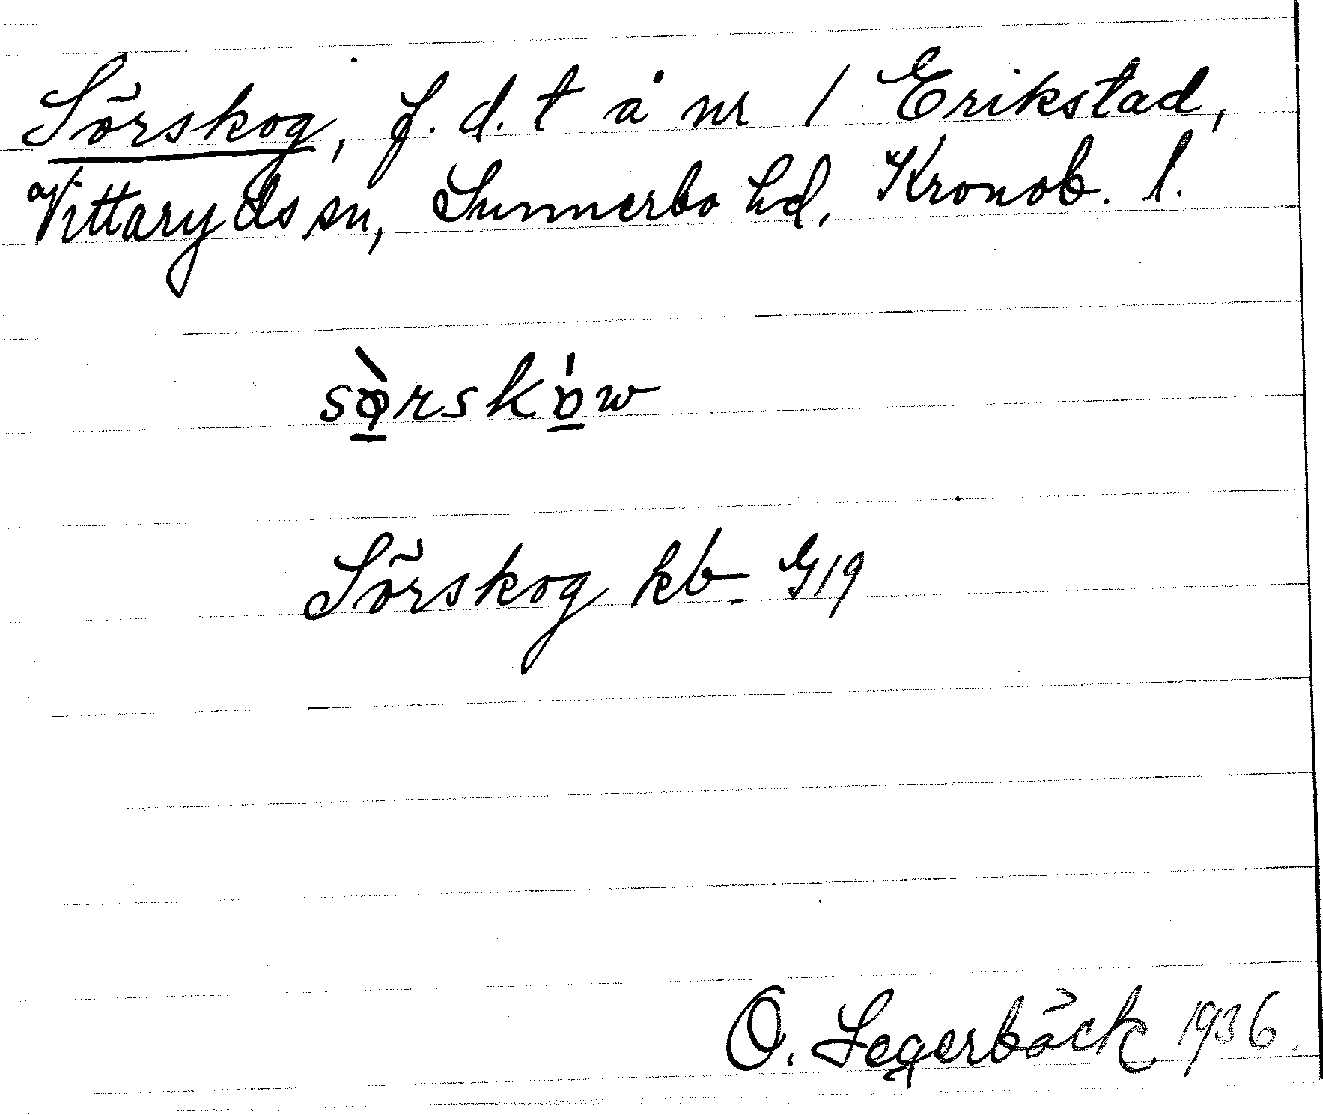 Sörskog, f. d. t å nr 1 Erikstad,
Vittaryds sn, Sunnerbo hd, Kronob. l.
sø̠̀rskó̠w
Sörskog kb. G19
O. Segerbäck 1936.